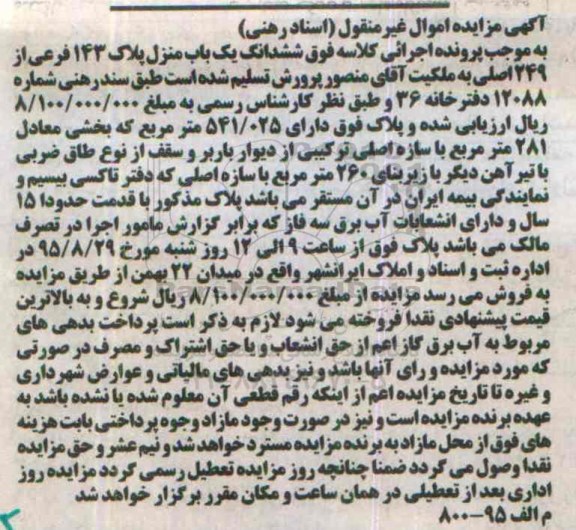 آگهی مزایده اموال غیر منقول (اسناد رهنی)
به موجب پرونده اجرائی کلاسه فوق ششدانگ یک باب منزل پلاک ۱۴۳ فرعی از
۲۴۹ اصلی به ملکیت آقای منصور پرورش تسلیم شده است طبق سند رهنی شماره
۱۲۰۸۸ دفترخانه ۳۶ و طبق نظر کارشناس رسمی به مبلغ ۸/۱۰۰/۰۰۰/۰۰۰
ریال ارزیابی شده و پلاک فوق دارای ۵۴۱/۰۲۵ متر مربع که بخشی معادل
۲۸۱ متر مربع با سازه اصلی ترکیبی از دیوار باربر و سقف از نوع طاق ضربی
با تیر آهن دیگر با زیربنای ۲۶۰ متر مربع با سازه اصلی که دفتر تاکسی بیسیم و
نمایندگی بیمه ایران در آن مستقر می باشد پلاک مذکور با قدمت حدودا ۱۵
سال و دارای انشعابات آب برق سه فاز که برابر گزارش مامور اجرا در تصرف
مالک می باشد پلاک فوق از ساعت ۹ الی ۱۲ روز شنبه مورخ ۹۵/۸/۲۹ در
اداره ثبت و اسناد و املاک ایرانشهر واقع در میدان ۲۲ بهمن از طریق مزایده
به فروش می رسد مزایده از مبلغ ۸/۱۰۰/۰۰۰/۰۰۰ ریال شروع و به بالاترین
قیمت پیشنهادی نقدا فروخته می شود لازم به ذکر است پرداخت بدهی های
مربوط به آب برق گاز اعم از حق انشعاب و یا حق اشتراک و مصرف در صورتی
که مورد مزایده و رای آنها باشد و نیز بدهی های مالیاتی و عوارض شهرداری
و غیره تا تاریخ مزایده اعم از اینکه رقم قطعی آن معلوم شده یا نشده باشد به
عهده برنده مزایده است و نیز در صورت وجود مازاد وجوه پرداختی بابت هزینه
های فوق از محل مازاد به برنده مزایده مسترد خواهد شد و نیم عشر و حق مزایده
نقدا وصول می گردد ضمنا چنانچه روز مزایده تعطیل رسمی گردد مزایده روز
اداری بعد از تعطیلی در همان ساعت و مکان مقرر برگزار خواهد شد
م الف ۹۵-۸۰۰